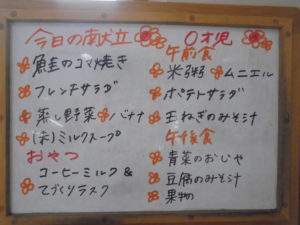 今日の献立
鮭のゴマ焼き
フレンチサラダ
蒸し野菜 バナナ
(未)ミルクスープ
おやつ
コーヒーミルク&
てづくりラスク
0才児
午前食
米粥 ムニエル
ポテトサラダ
玉ねぎのみそ汁
午後食
青菜のおじや
豆腐のみそ汁
果物